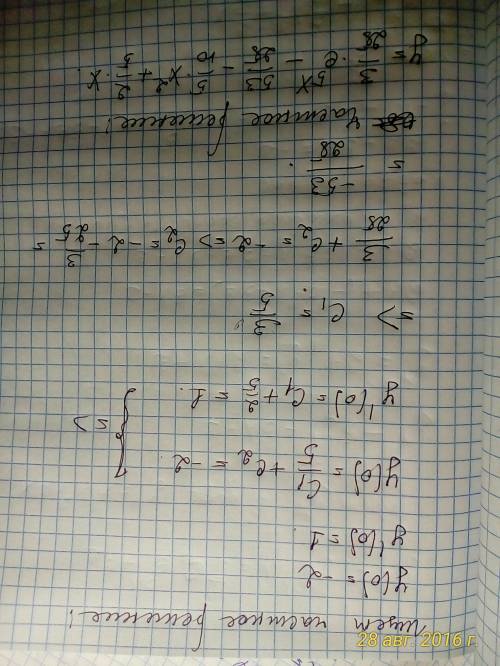 Ищем частное решение!
y(0) = -2
y'(0) = 1.
y(0) = C₁/5 + C₂ = -2
y'(0) = C₁ + 2/5 = 1. } =>
=> C₁ = 3/5
3/25 + C₂ = -2 => C₂ = -2 - 3/25 =
= -53/25.
Частное решение!
y = 3/25 · e^5x - 53/25 - 5/10 · x² + 2/5 · x.
28 авг. 2016 г.